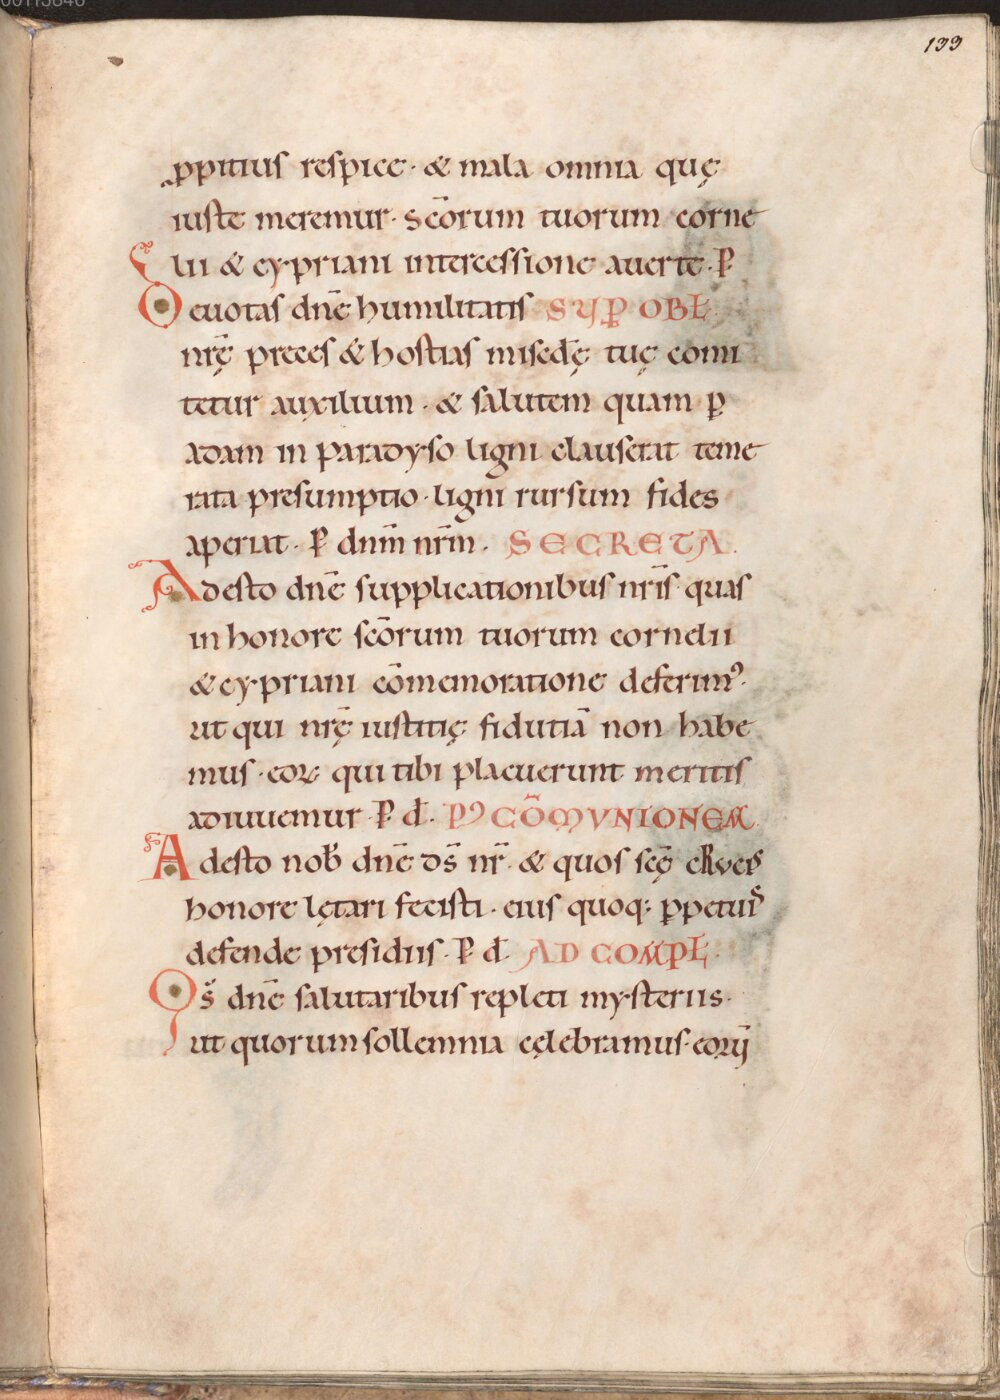 133
ꝓpitius respice · & mala omnia quę
iuste meremur · sc̄orum tuorum corne
lii & cypriani intercessione auerte · P̄
Deuotas dn̄e humilitatis SUP̱ OBŁ
nr̄ę preces & hostias misc̄dę tuę comi
tetur auxilium · & salutem quam ꝑ
adam in paradyso ligni clauserat teme
rata presumptio · ligni rursum fides
aperiat · P̄ dn̄m nr̄m · SECRETA.
Adesto dn̄e supplicationibus nr̄is quas
in honore sc̄orum tuorum cornelii
& cypriani cōmemoratione deferimꝰ ·
ut qui nr̄ę iustitię fidutiā non habe
mus · eoꝝ qui tibi placuerunt meritis
adiuuemur P̄ đ. PꝰCŌMUNIONEM.
Adesto nob̄ dn̄e ds̄ nr̄ · & quos sc̄ę
honore lętari fecisti · eius quoq; ꝑpetuis̄
defende presidiis · P̄ đ AD COMPŁ.
Qs̄ dn̄e salutaribus repleti mysteriis ·
ut quorum sollemnia cęlebramus · eorū